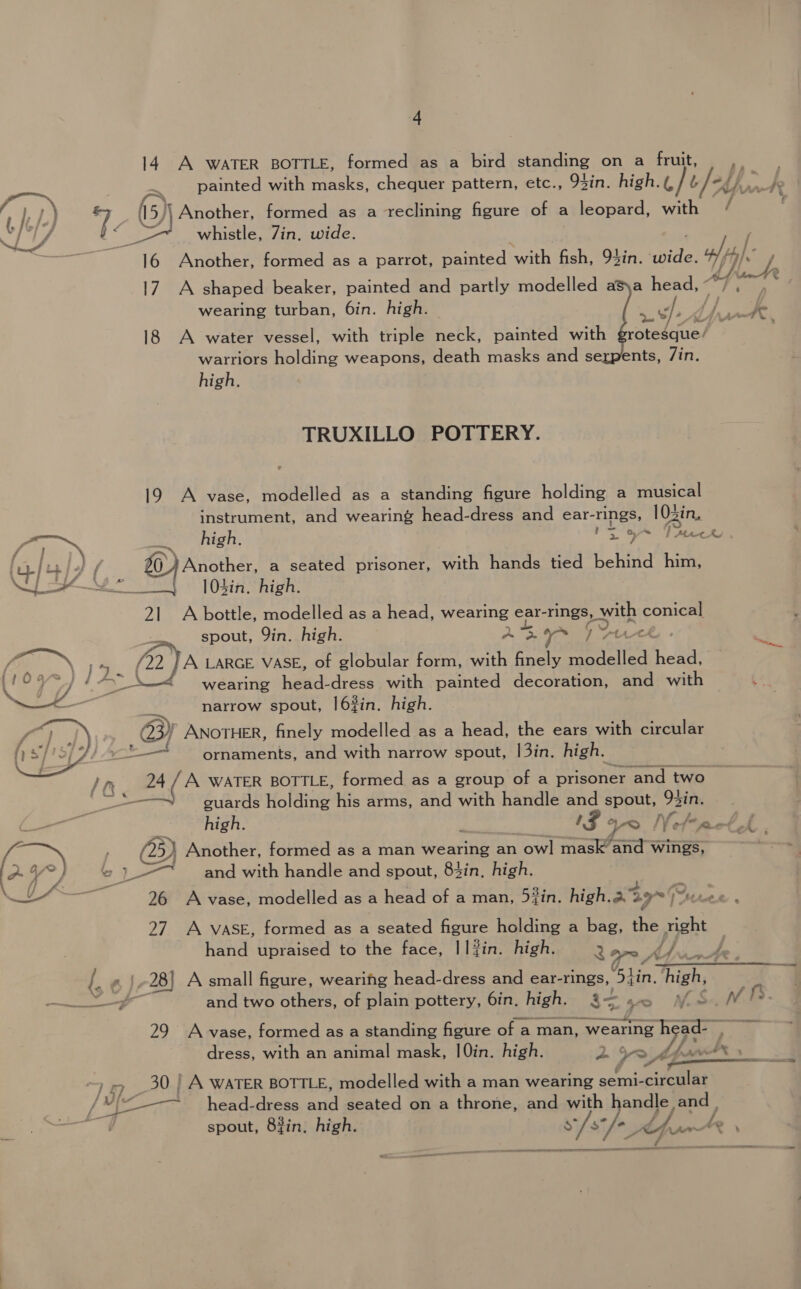 4
14 A WATER BOTTLE, formed as a bird standing on a fruit,
painted with masks, chequer pattern, etc., 9½in. high.
15 Another, formed as a reclining figure of a leopard, with
whistle, 7in. wide.
16 Another, formed as a parrot, painted with fish, 9½in. wide.
17 A shaped beaker, painted and partly modelled as a head,
wearing turban, 6in. high.
18 A water vessel, with triple neck, painted with grotesque
warriors holding weapons, death masks and serpents, 7in.
high.
TRUXILLO POTTERY.
19 A vase, modelled as a standing figure holding a musical
instrument, and wearing head-dress and ear-rings, 10½in.
high.
20 Another, a seated prisoner, with hands tied behind him,
10½in. high.
21 A bottle, modelled as a head, wearing ear-rings, with conical
spout, 9in. high.
22 A LARGE VASE, of globular form, with finely modelled head,
wearing head-dress with painted decoration, and with
narrow spout, 16¾in. high.
23 ANOTHER, finely modelled as a head, the ears with circular
ornaments, and with narrow spout, 13in. high.
24 A WATER BOTTLE, formed as a group of a prisoner and two
guards holding his arms, and with handle and spout, 9½in.
high.
25 Another, formed as a man wearing an owl mask and wings,
and with handle and spout, 8½in. high.
26 A vase, modelled as a head of a man, 5¾in. high.
27 A VASE, formed as a seated figure holding a bag, the right
hand upraised to the face, 11¾in. high.
28 A small figure, wearing head-dress and ear-rings, 5½in. high,
and two others, of plain pottery, 6in. high.
29 A vase, formed as a standing figure of a man, wearing head-
dress, with an animal mask, 10in. high.
30 A WATER BOTTLE, modelled with a man wearing semi-circular
head-dress and seated on a throne, and with handle and
spout, 8¾in. high.